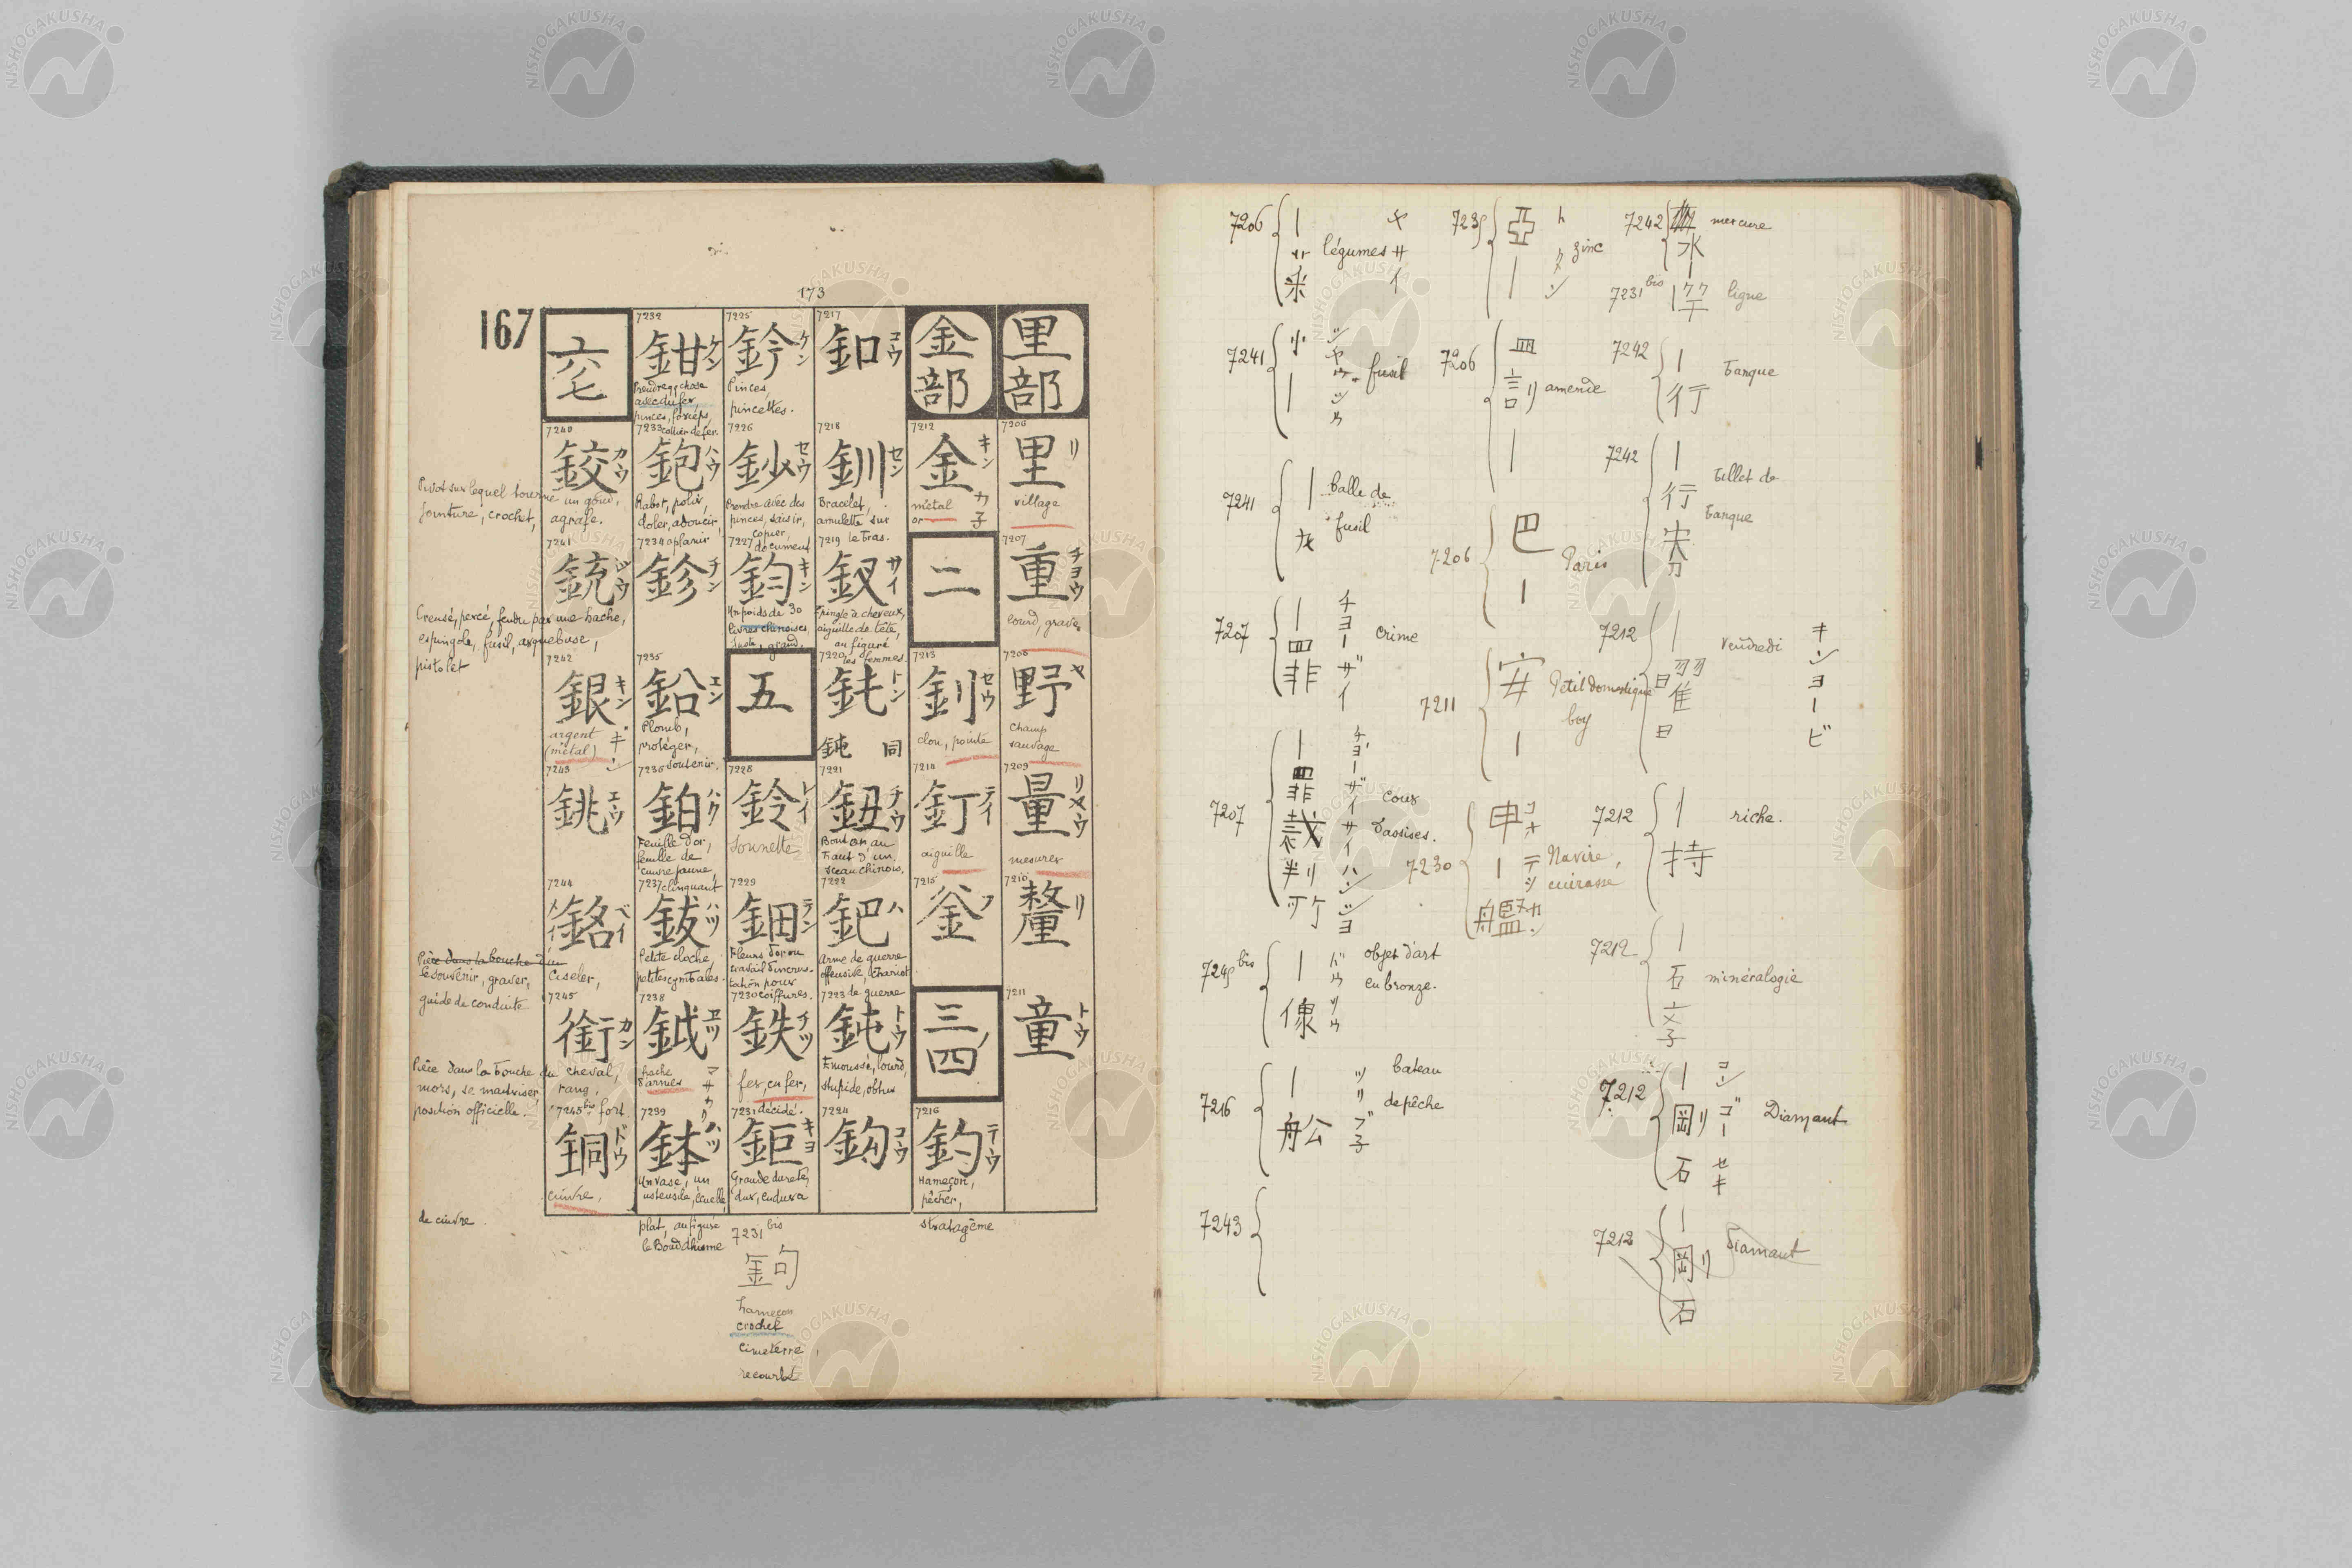 173
167
里部
7206
里
リ
village
7207
重
チヨウ
lourd, grave
7208
野
ヤ
champ
sauvage
7209
量
リヤウ
mesurer
7210
釐
リ
7211
童
トウ
金部
7212
金
キン
カ子
métal
or
二
7213
釗
セウ
clou, pointe
7214
釘
テイ
aiguille
7215
釜
フ
三四
7216
釣
テウ
Hameçon,
pêcher,
stratagème
7217
釦
コウ
7218
釧
セン
Bracelet,
amulette sur
le bras.
7219
釵
サイ
Epingle à cheveux,
aiguille de tête,
au figuré
les femmes.
7220
鈍
トン
鈍 同
7221
鈕
チウ
Bouton au
haut d'un
sceau chinois.
7222
鈀
ハ
Arme de guerre
offensive, chariot
de guerre
7223
鈍
トウ
Emoussé, lourd,
stupide, obtus
7224
鈎
コウ
7225
鈐
ケン
Pinces,
pincettes.
7226
鈔
セウ
Prendre avec des
pinces, saisir,
copier,
document
7227
鈞
キン
Un poids de 30
livres chinoises,
juste, grand,
五
7228
鈴
レイ
Sonnette
7229
鈿
テン
Fleurs d'or ou
travail d'incrus-
tation pour
coiffures.
7230
鉄
テツ
fer, en fer,
décidé.
7231
鉅
キヨ
Grande dureté,
dur, endurci
7231 bis
鉤
hameçon
crochet
cimeterre
recourbé
7232
鉗
ケン
Prendre qq chose
avec du fer,
pinces, forceps,
collier de fer.
7233
鉋
ハウ
Rabot, polir,
doler, adoucir,
aplanir
7234
鉁
チン
7235
鉛
エン
Plomb,
protéger,
soutenir.
7236
鉑
ハク
Feuille d'or,
feuille de
cuivre jaune,
clinquant
7237
鈸
ハツ
Petite cloche,
petites cymbales.
7238
鉞
エツ
マサカリ
hache
d'armes
7239
鉢
ハツ
Un vase, un
ustensile, écuelle,
plat, au figuré
le Bouddhisme
六七
7240
鉸
カウ
Pivot sur lequel tourne un gond,
jointure, crochet, agrafe.
7241
銃
ジウ
Creusé, percé, fendu par une hache,
espingole, fusil, arquebuse,
pistolet
7242
銀
キン
ギン
argent
(métal)
7243
銚
エウ
7244
銘
メイ
ベイ
Pièce dans la bouche d'un
se souvenir, graver, ciseler,
guide de conduite
7245
銜
カン
Pièce dans la bouche du cheval,
mors, se maîtriser, rang,
position officielle. fort
7245 bis
銅
ドウ
cuivre,
de cuivre.
7206 { 丨 ソ 菜 légumes ヤサイ
7241 { 小 丨 fusil
7241 { 丨 丸 balle de
fusil
7207 { 丨 罪 crime チヨーザイ
7207 { 丨 罪 裁 判 所 cour
d'assises.
チヨーザイサイハンジヨ
7245 bis { 丨 像 objet d'art
en bronze.
ドウゾウ
7216 { 丨 船 bateau
de pêche
ツリブ子
7243 {
7235 { 亞 丨 zinc
7206 { 罰 丨 amende
7206 { 巴 丨 Paris
7211 { 安 丨 Petit domestique
boy
7230 { 甲 丨 艦 Navire,
cuirassé
コオテツカン
7242 { 水 丨 mercure
7231 bis 丨 ligne
7242 { 丨 行 banque
7242 { 丨 行 券 billet de
banque
7212 { 丨 曜 日 vendredi キンヨービ
7212 { 丨 持 riche.
7212 { 丨 石 文子 minéralogie
7212 { 丨 剛 石 Diamant コンゴーセキ
7212 { 丨 剛 石 diamant
NISHOGAKUSHA